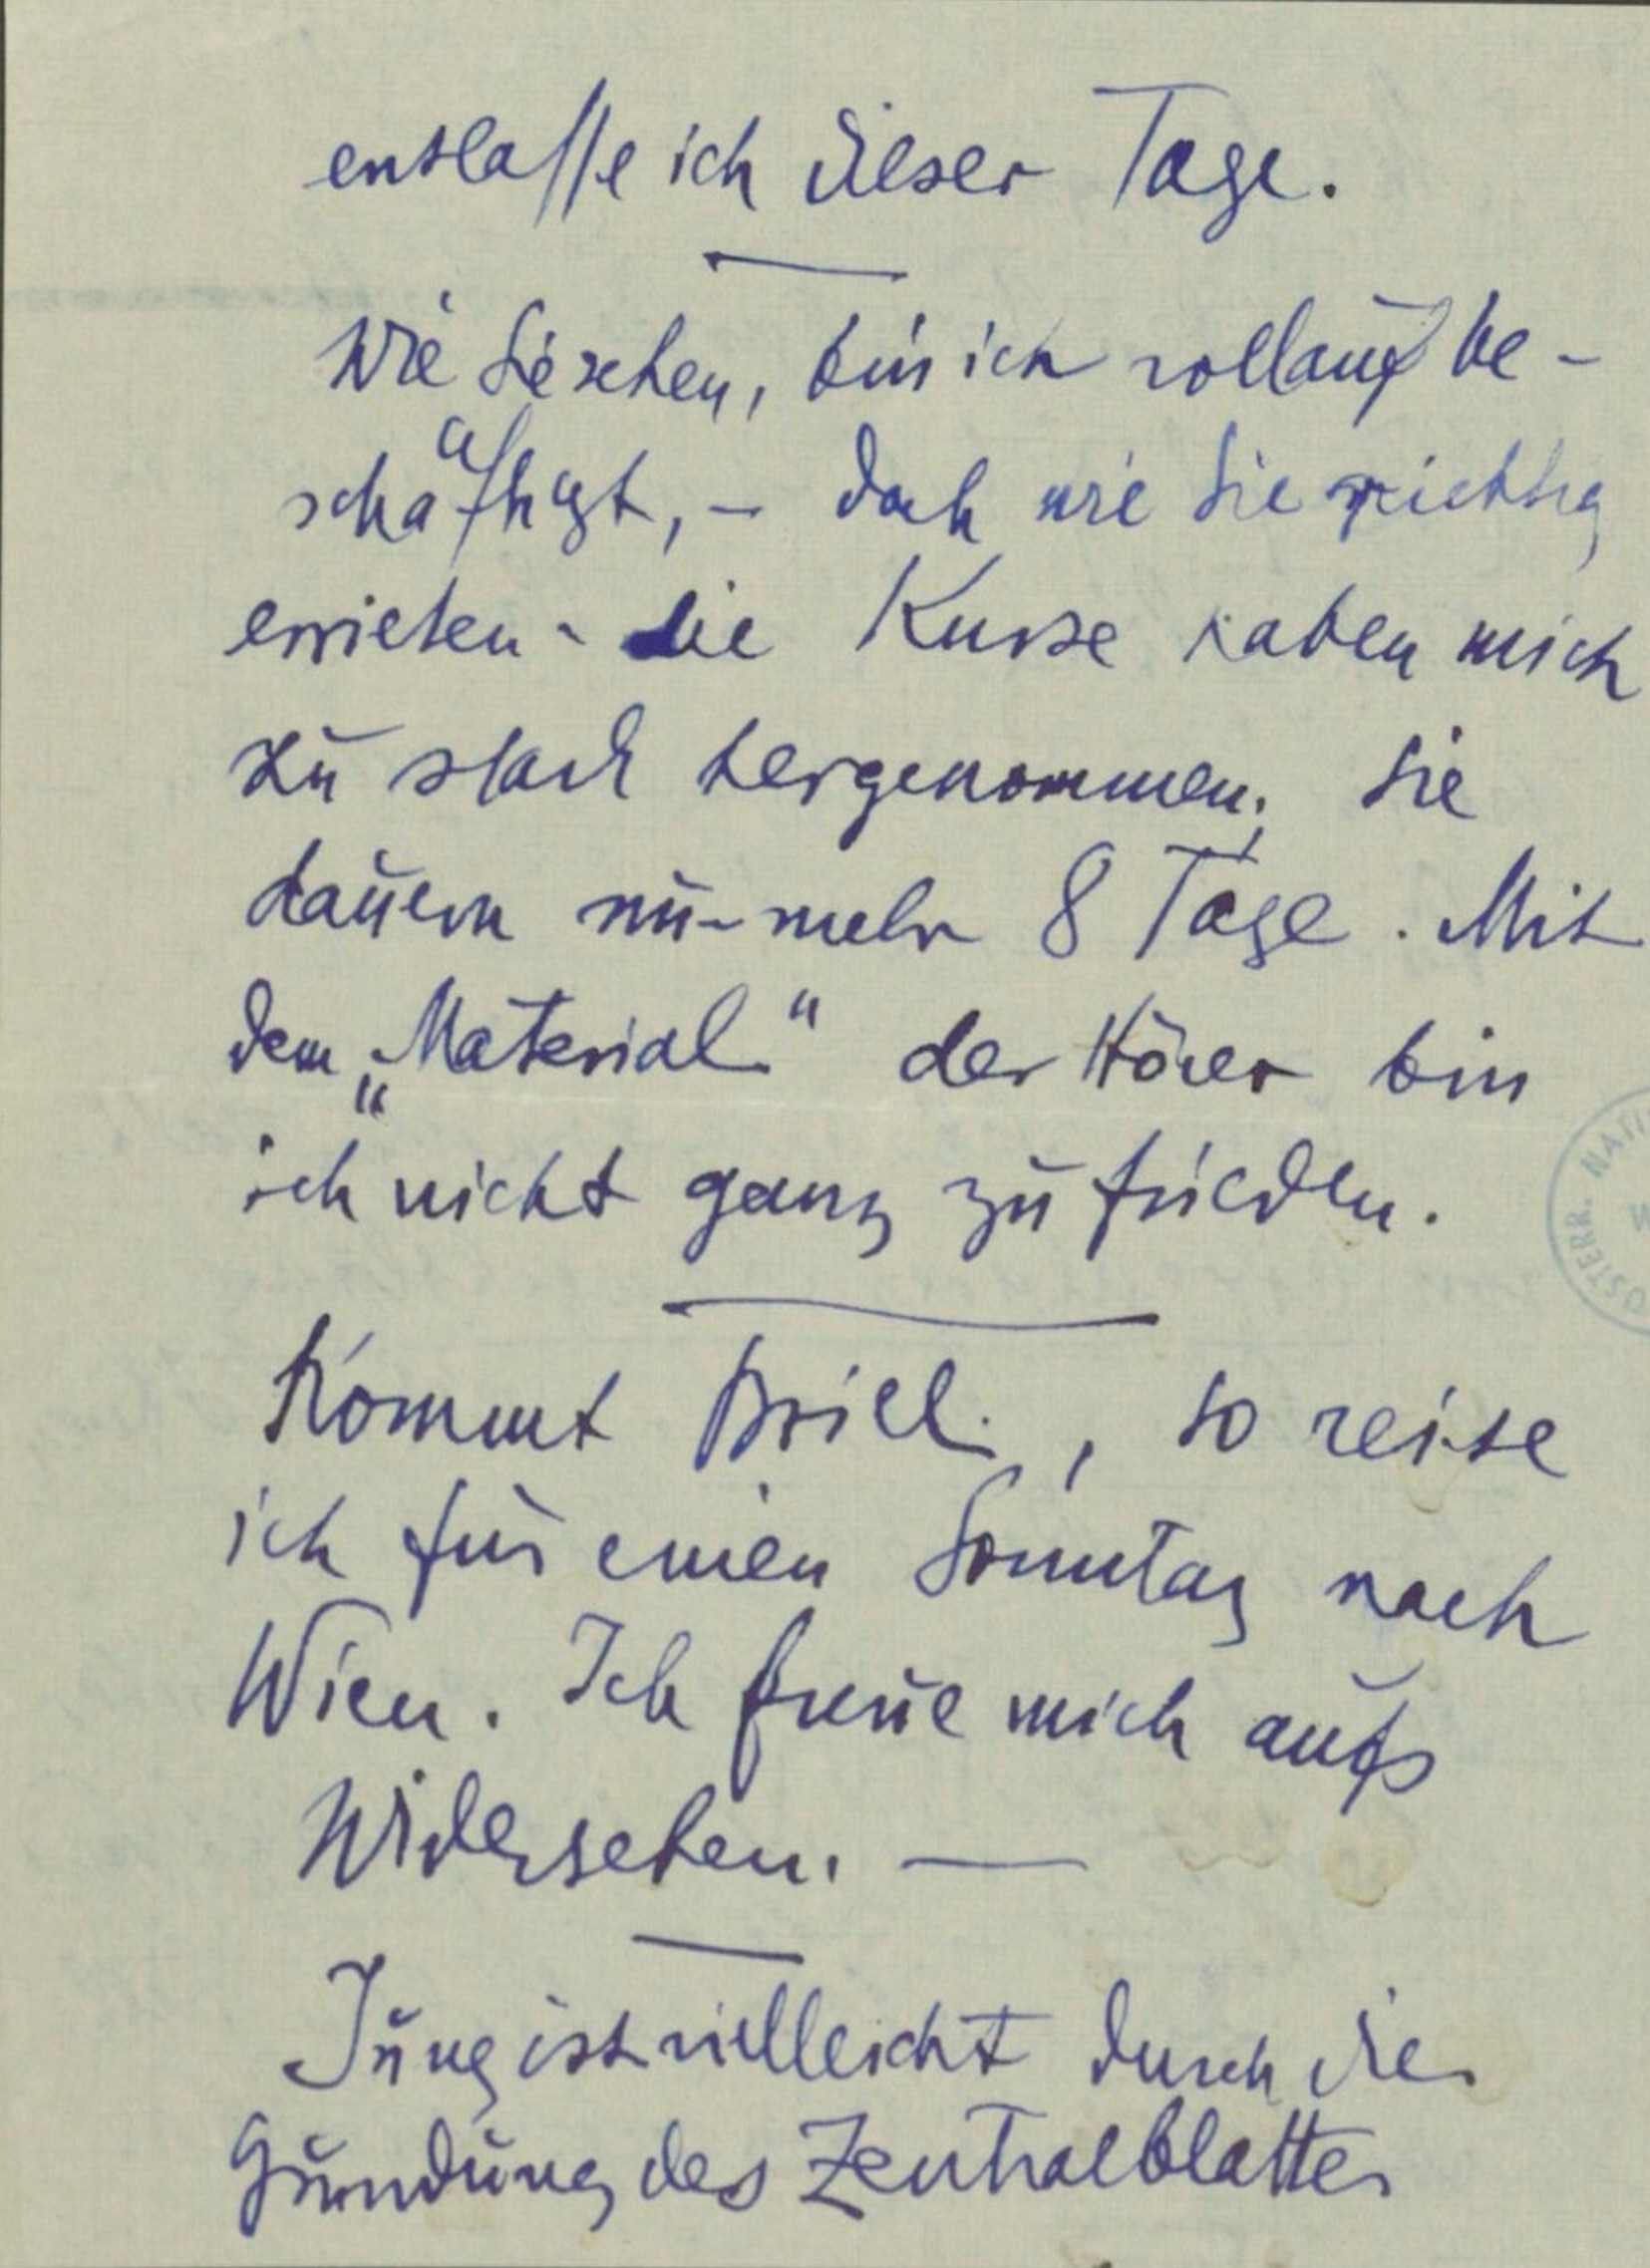 entlasse ich dieser Tage.
Wie Sie sehen, bin ich vollauf be-
schäftigt, – doch wie Sie richtig
errieten – die Kurse haben mich
zu stark hergenommen. Sie
dauern nurmehr 8 Tage. Mit
dem „Material“ der Hörer bin
ich nicht ganz zufrieden.
Kommt Brill, so reise
ich für einen Sonntag nach
Wien. Ich freue mich aufs
Widersehen. —
Jung ist vielleicht durch die
Gründung des Zentralblattes
ÖSTERR. NATI